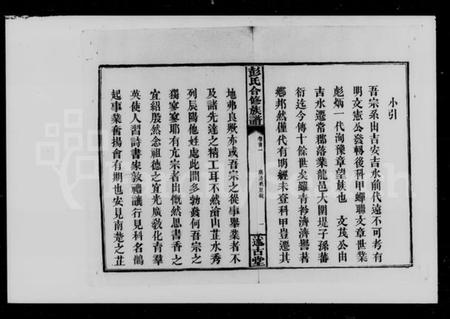 小引
吾宗系出吉安吉水前代遠不可考有
明文憲公發轉後科甲蟬聯文章世業
彪炳一代洵豫章望族也 文茂公由
吉水遷常郡落業龍邑大圍堤子孫蕃
衍迄今傳十餘世矣雖青衿濟濟譽著
鄉邦然僅代有明經未登科甲豈遷其
彭氏合修族譜
卷首一
一
述古堂
地弗良歟亦或吾宗之從事舉業者不
及諸先達之精工耳不然澹山芷水秀
列辰陽他姓處此間多勃發何吾宗之
獨寥寥耶有亢宗者出慨然思書香之
宜紹殷然念祖德之宜光廣敎化育羣
英使人習詩書家敦禮讓行見科名鵲
起事業奮揚會有期也安見南楚之芷